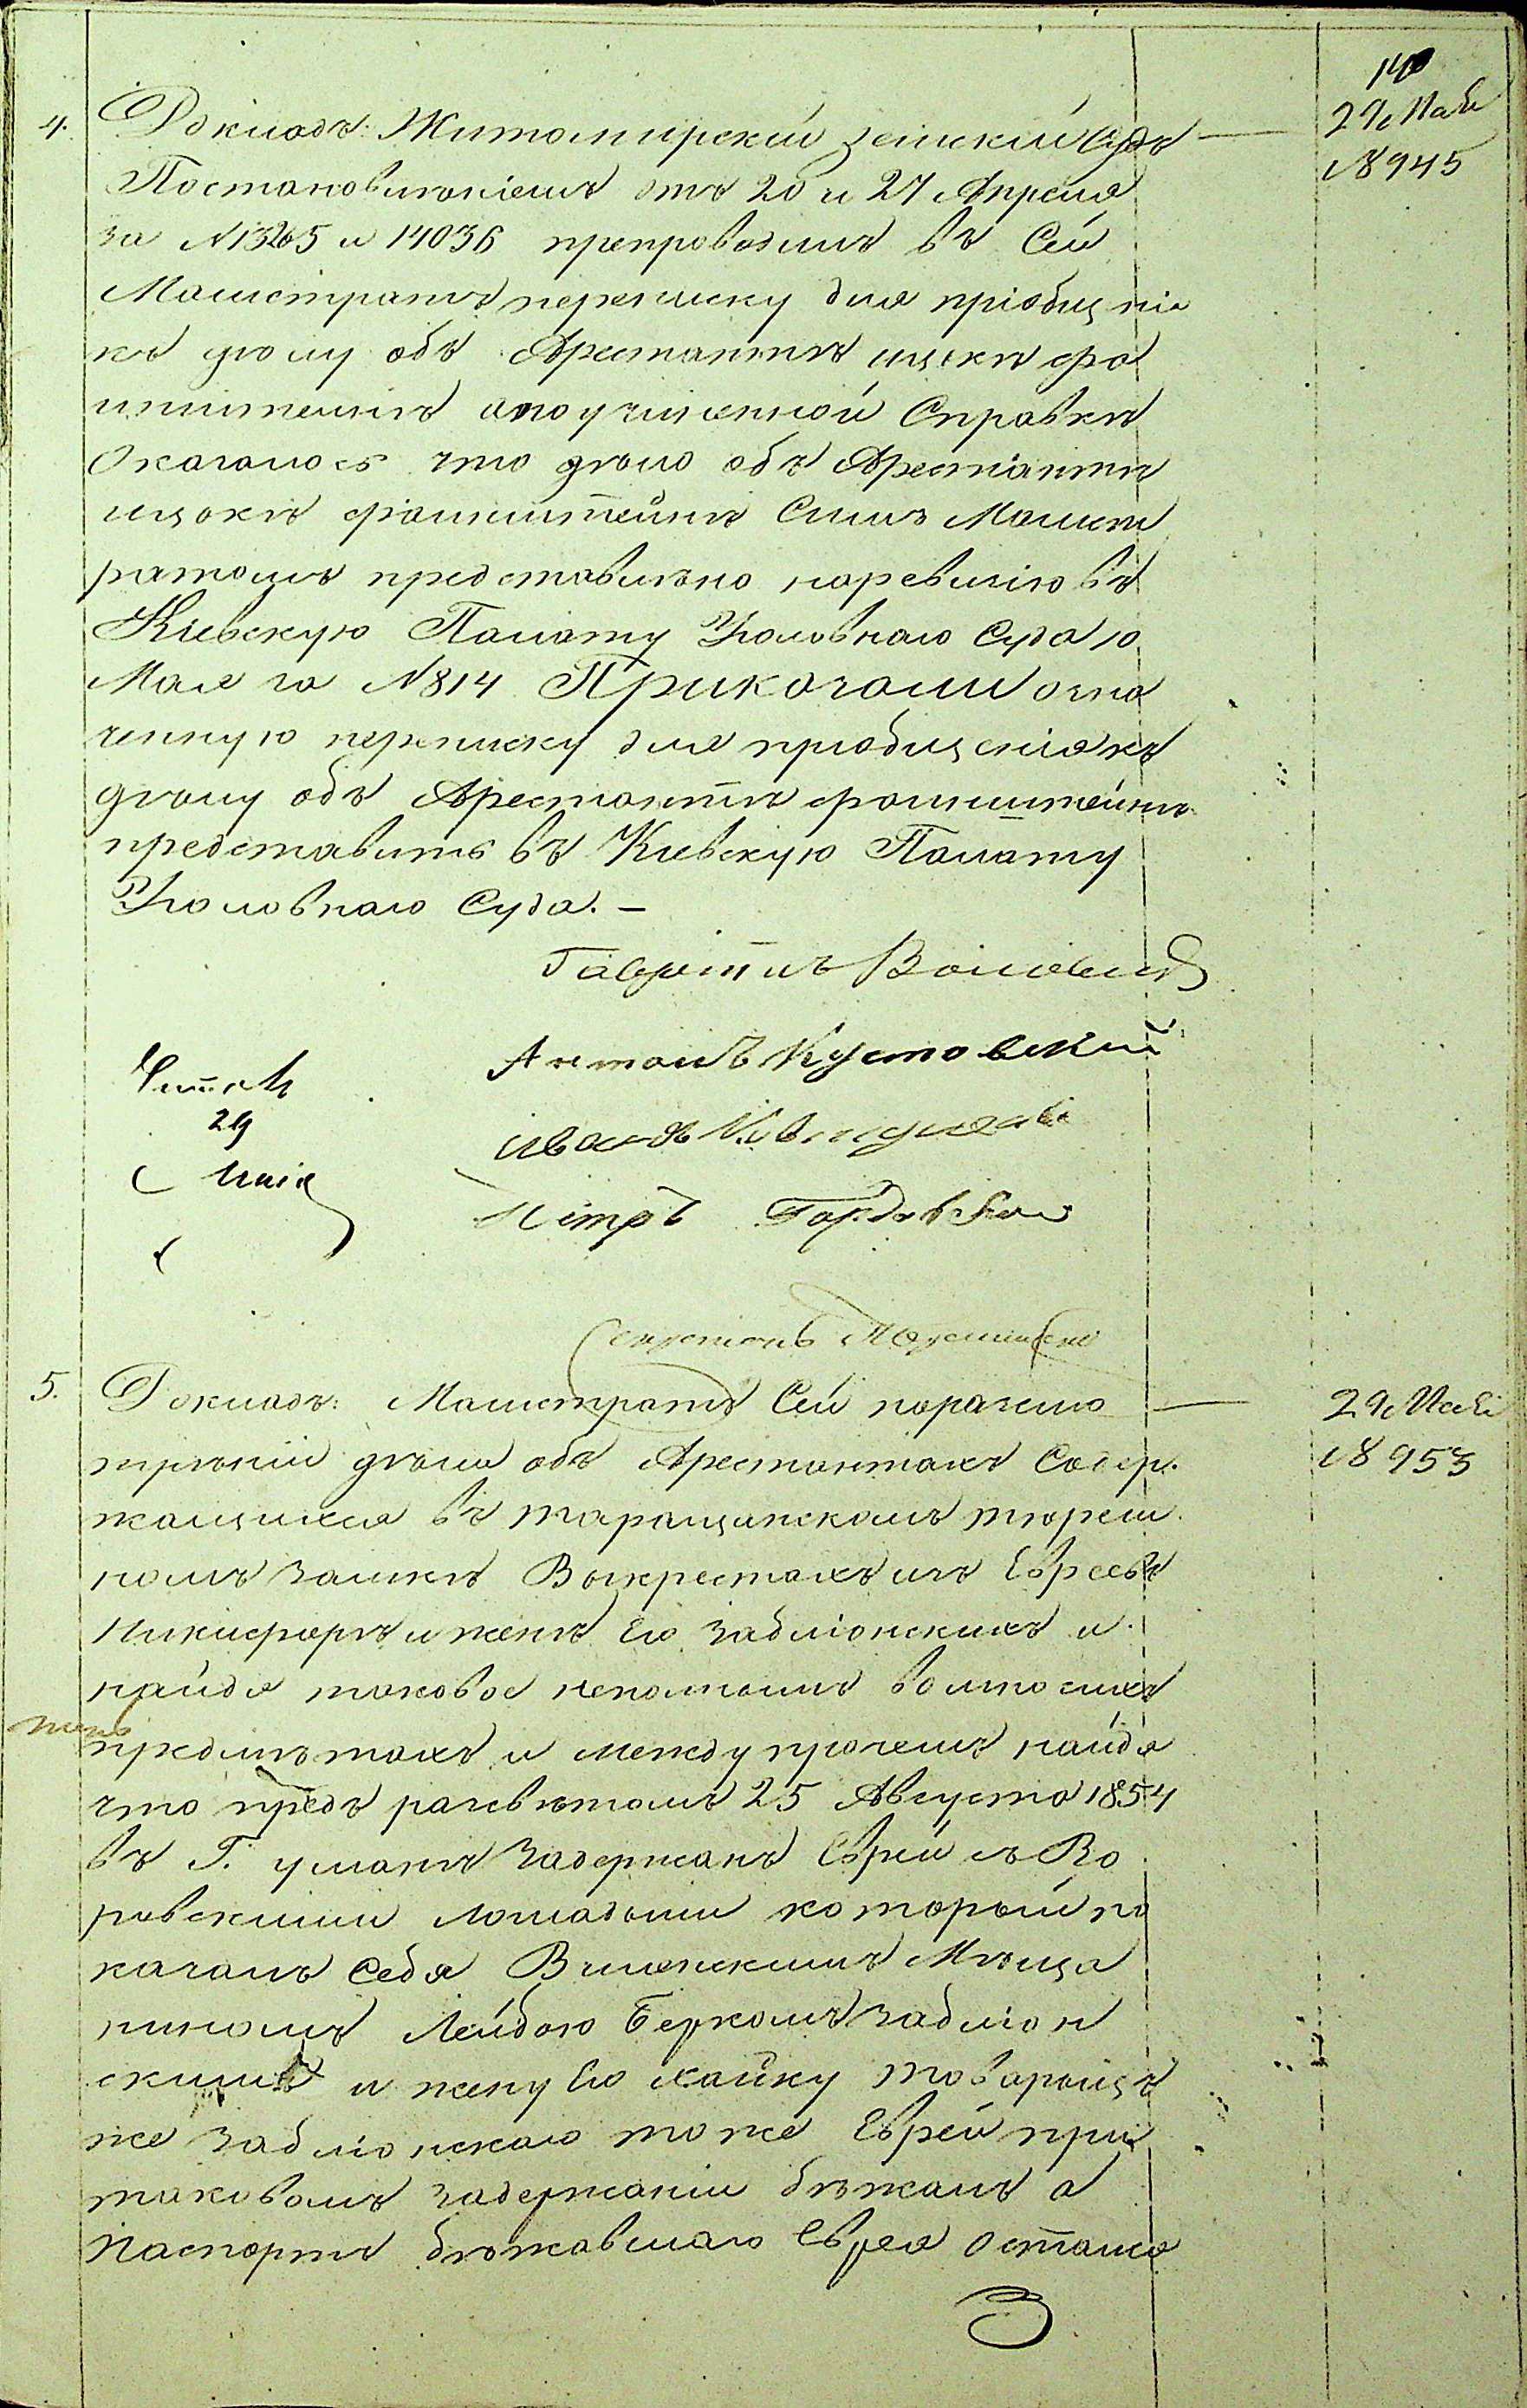 140
4. Докладъ: Житомирскій земскій Судъ —
29 Маія
№ 945
Постановленіемъ отъ 20 и 27 Апреля
за № 13265 и 14036 препроводилъ въ Сей
Магистратъ переписку для пріобщенія
къ дѣлу объ Арестантѣ ицекѣ фра
нштейнѣ а по учиненной Справкѣ
Оказалось что дѣло объ Арестантѣ
ицокѣ франкштейнѣ Симъ Магист
ратомъ представлѣно на ревизію въ
Кіевскую Палату Уголовнаго Суда 10
Мая за № 814 Приказали озна
ченную переписку для приобщенія къ
дѣлу объ Арестантѣ франкштейнѣ
представить въ Кіевскую Палату
Уголовнаго Суда. —
Антонъ Кустовскій
Читалъ
29
Маія
Иванъ
Петръ
Секретарь
5. Докладъ: Магистратъ Сей по разсмо —
29 Маія
№ 953
трѣніи дѣла объ Арестантахъ Содер.
жащихся въ таращанскомъ тюрем.
номъ замкѣ Выкрестахъ изъ Евреевъ
Никифорѣ и женѣ Его Заблюнскихъ и
найдя таковое неполнымъ во многихъ
предмѣтахъ и между прочемъ найдя
что предъ разсвѣтомъ 25 Августа 1854
въ Г. умани Задержанъ Еврей съ Во
ровскими лошадьми который по
казалъ Себя Виленскимъ Мѣща
ниномъ Лейбою Беркомъ Заблюн
скимъ и жену Его хайку товарищъ
же Заблюнскаго тоже Еврей при
таковомъ задержаніи бѣжалъ а
Паспортъ бѣжавшаго Еврея остался